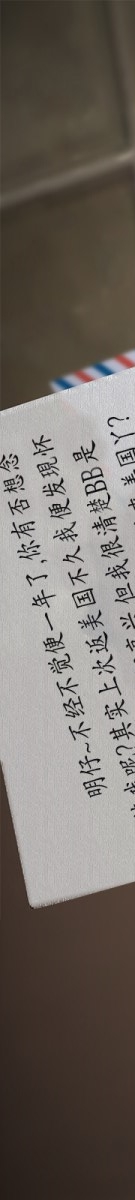 明仔~不经不觉便一年了,你有否想念
我呢?其实上次返美国不久我便发现怀
但我很清楚BB是
美国丫?